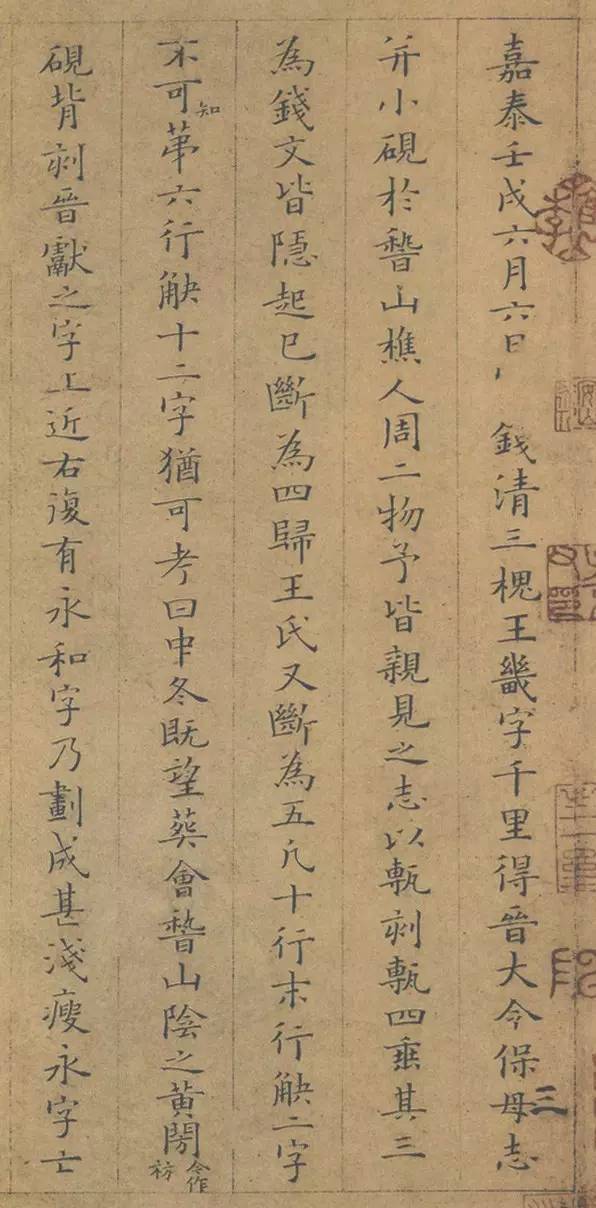 嘉泰壬戌六月六日錢清三槐王畿字千里得晉大令保母志
并小硯於稽山樵人周二物予皆親見之志以甎刻甎四垂其三
為錢文皆隱起已斷為四歸王氏又斷為五凡十行末行缺二字
不可知第六行缺十二字猶可考曰中冬既望葬會稽山陰之黃閍令作祊
硯背刻晉獻之字上近右復有永和字乃劃成甚淺瘦永字亡